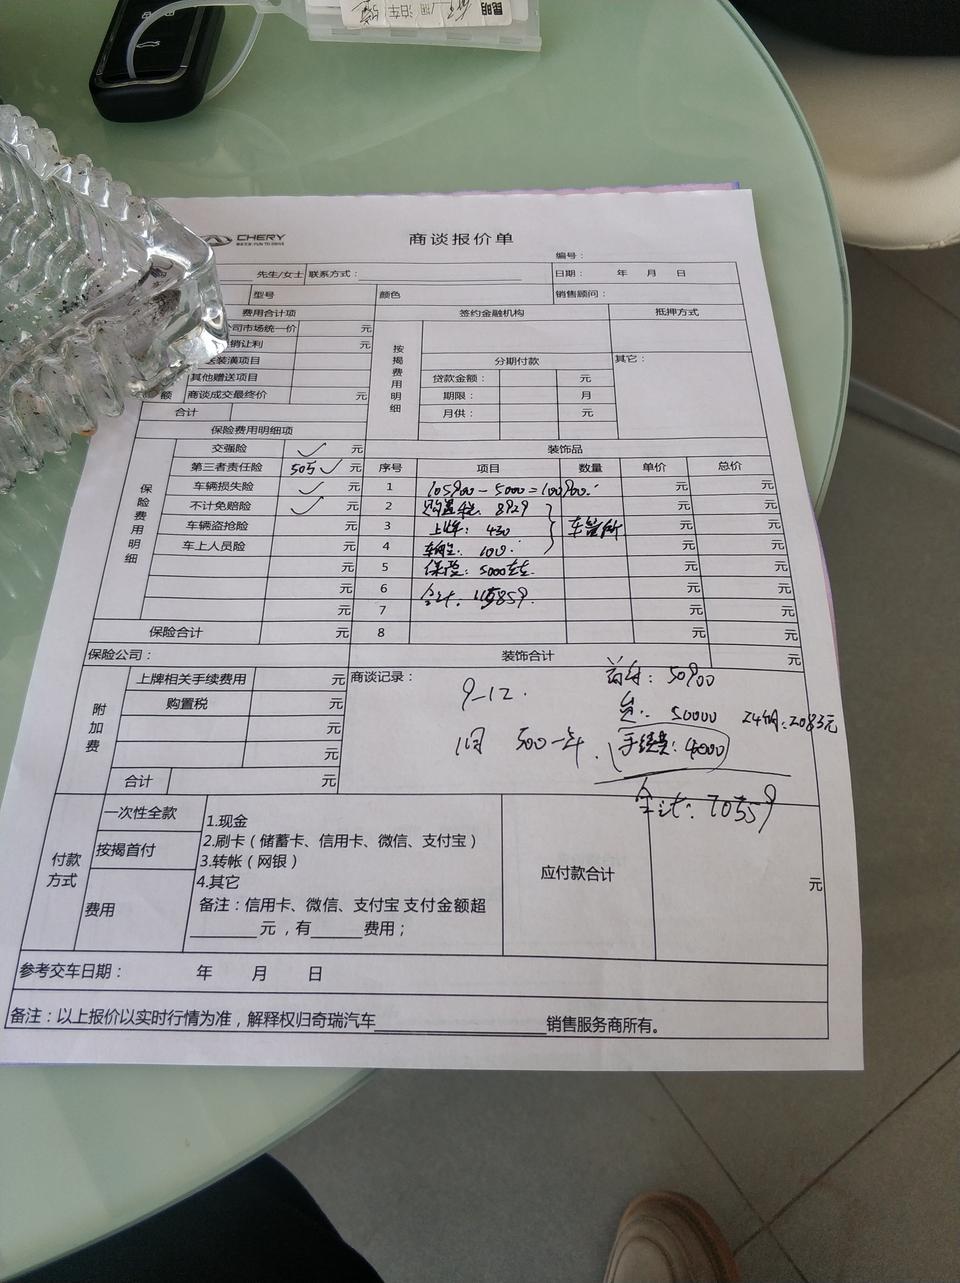 泊车
昆明
CHERY
商谈报价单
编号：
先生/女士 联系方式：
日期： 年 月 日
型号 颜色 销售顾问：
费用合计项 签约金融机构 抵押方式
司市场统一价 元
销让利 元
装潢项目
其他赠送项目
额 商谈成交最终价 元
合计
按揭费用明细
分期付款 其它：
贷款金额： 元
期限： 月
月供： 元
保险费用明细项 装饰品
保险费用明细
交强险 ✓ 元
第三者责任险 50万 ✓ 元
车辆损失险 ✓ 元
不计免赔险 ✓ 元
车辆盗抢险 元
车上人员险 元
元
元
保险合计 元
序号 项目 数量 单价 总价
1 105900-5000=100900. 元 元
2 购置税：8929 元 元
3 上牌：430 车管所 元 元
4 100. 元 元
5 保险：5000左右. 元 元
6 合计：115859. 元 元
7 元 元
8 元 元
保险公司： 装饰合计 元
附加费
上牌相关手续费用 元
购置税 元
元
元
合计 元
商谈记录：
9-12.
500一年.
首付：50900
贷：50000 24期：2083元
手续费：4000
合计：70559
付款方式
一次性全款
按揭首付
费用
1.现金
2.刷卡（储蓄卡、信用卡、微信、支付宝）
3.转帐（网银）
4.其它
备注：信用卡、微信、支付宝 支付金额超
______元，有______费用；
应付款合计 元
参考交车日期： 年 月 日
备注：以上报价以实时行情为准，解释权归奇瑞汽车__________________销售服务商所有。